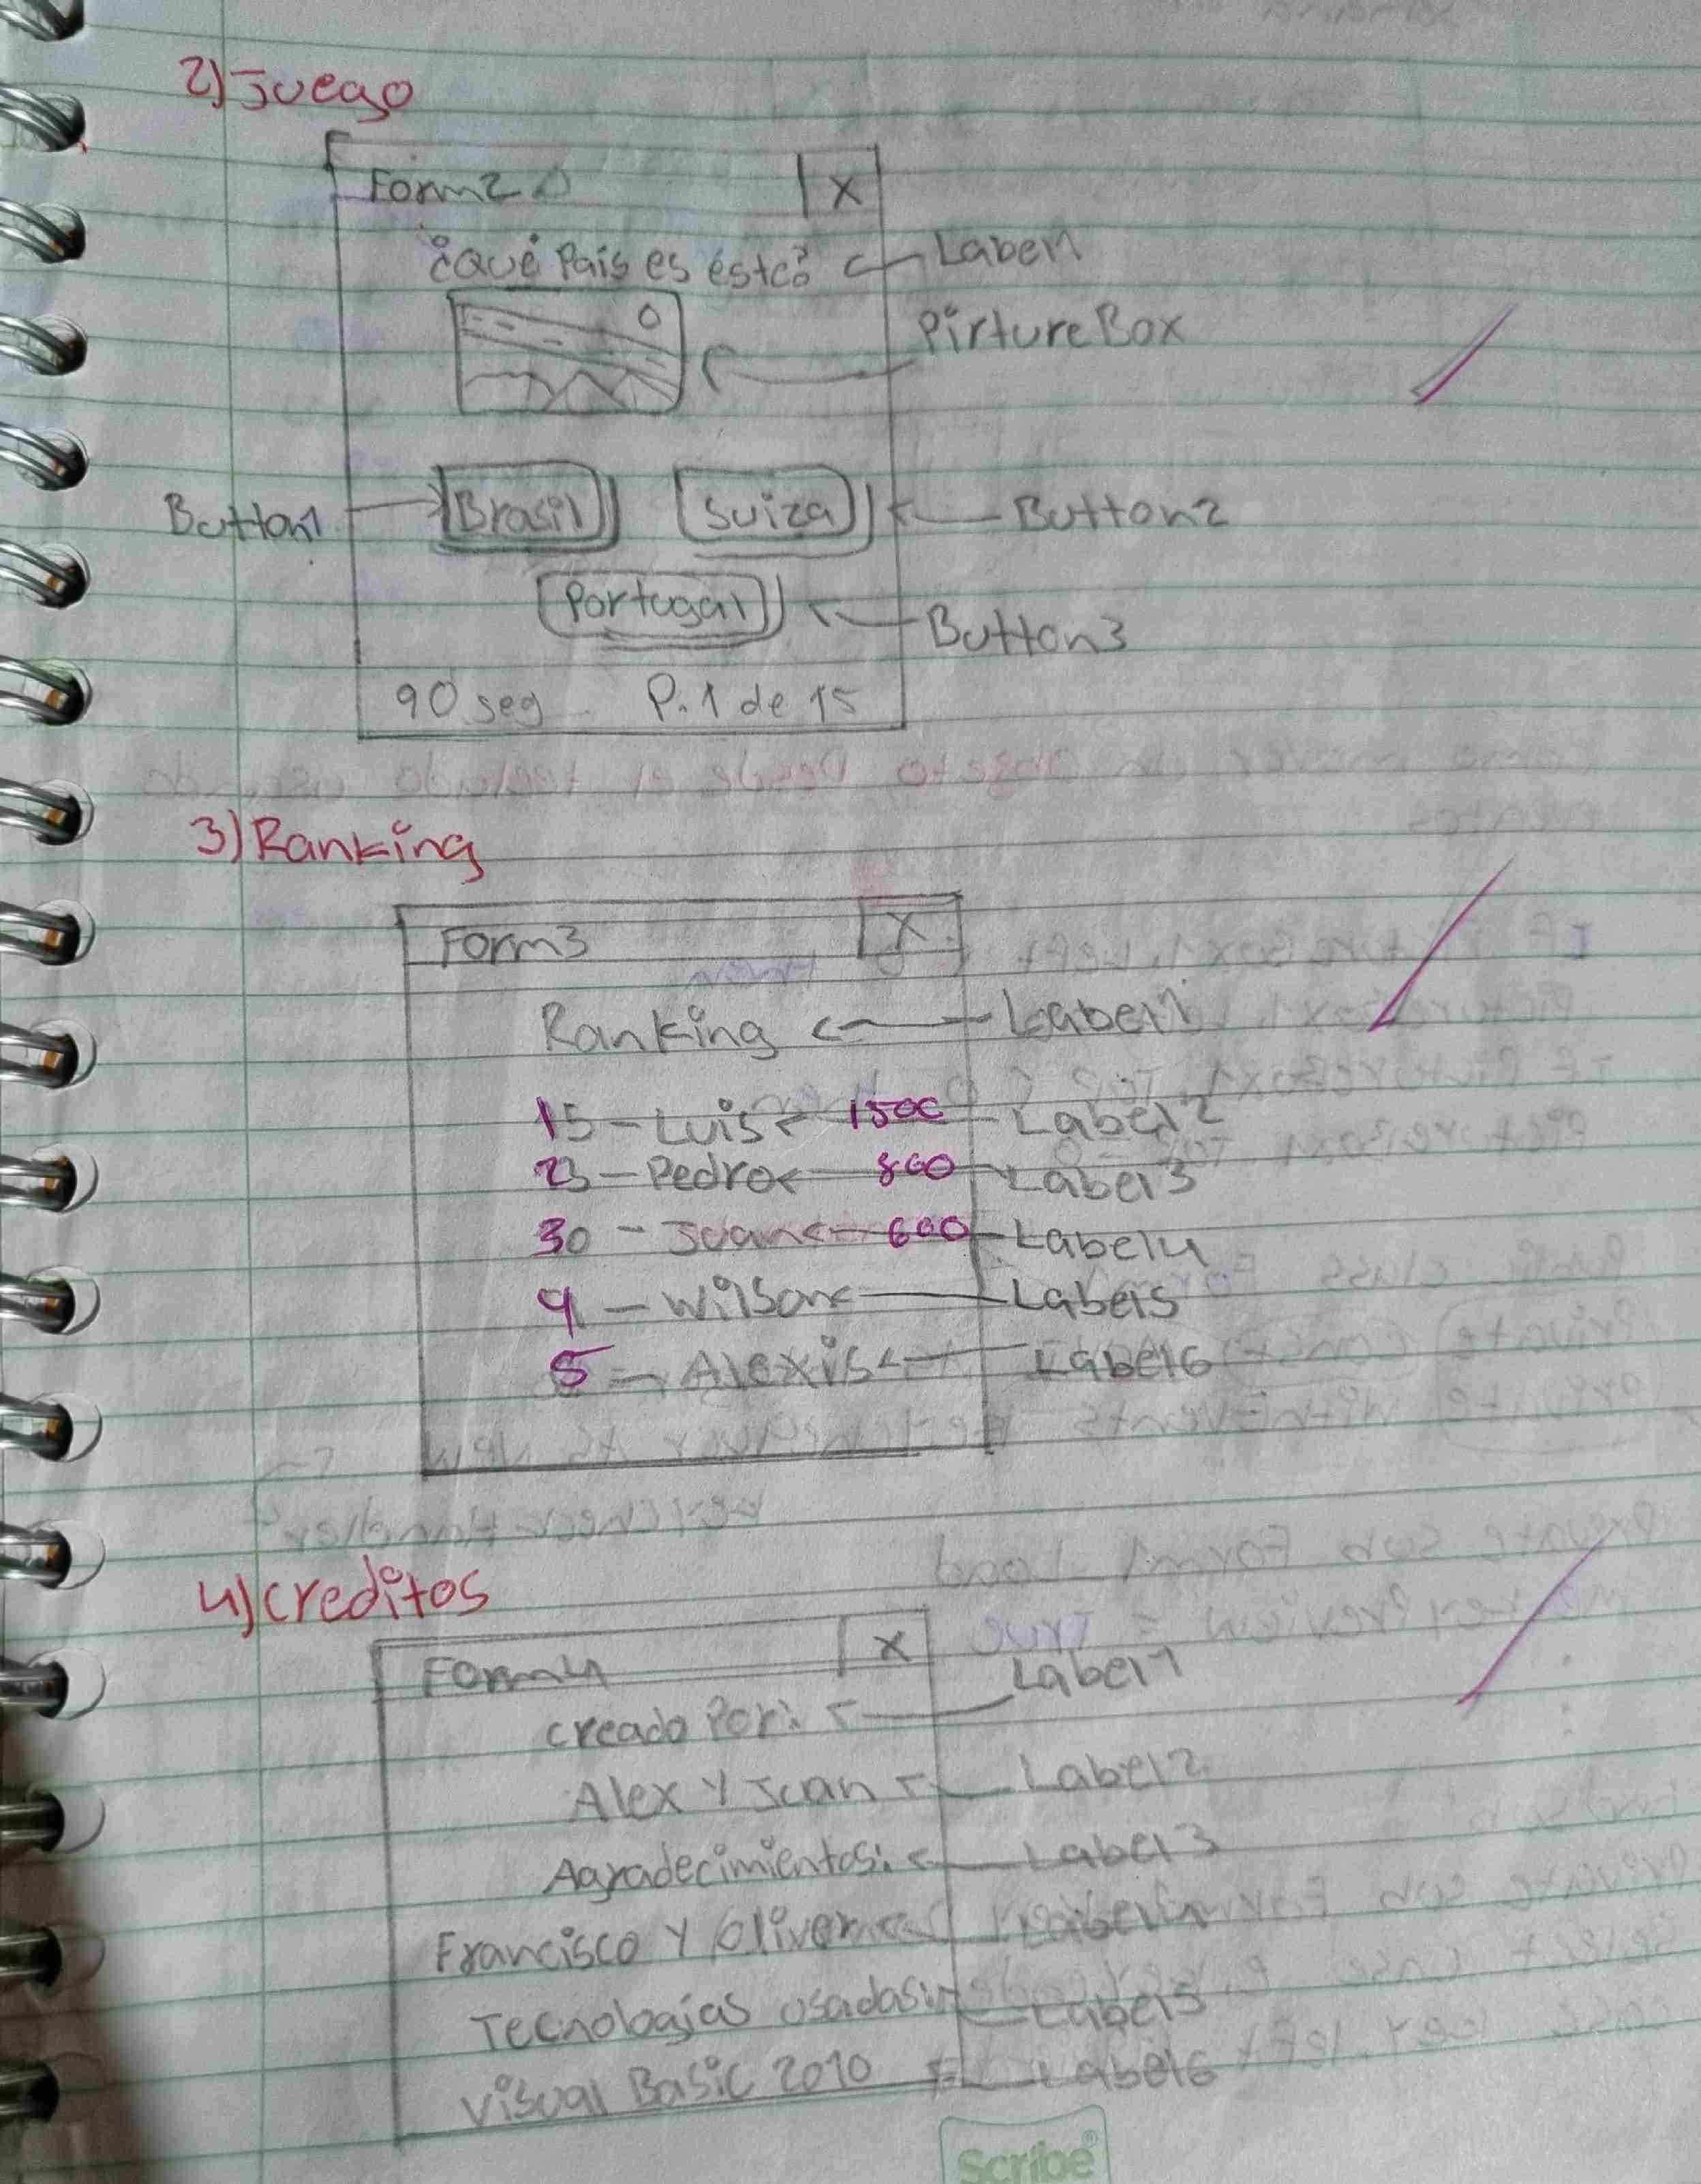 2) Juego
Form2 X
¿Qué País es éste? Label1
PirtureBox
Button1 Brasil Suiza Button2
Portugal Button3
90 seg P. 1 de 15
3) Ranking
Form3 X
Ranking Label1
15 - Luis 1500 Label2
23 - Pedro 800 Label3
30 - Juan 600 Label4
9 - Wilson Label5
5 - Alexis Label6
4) Creditos
Form4 X
Label1
Creado Por:
Alex Y Juan Label2
Agradecimientos: Label3
Francisco Y Oliver Label4
Tecnologías usadas: Label5
Visual Basic 2010 Label6
Scribe®